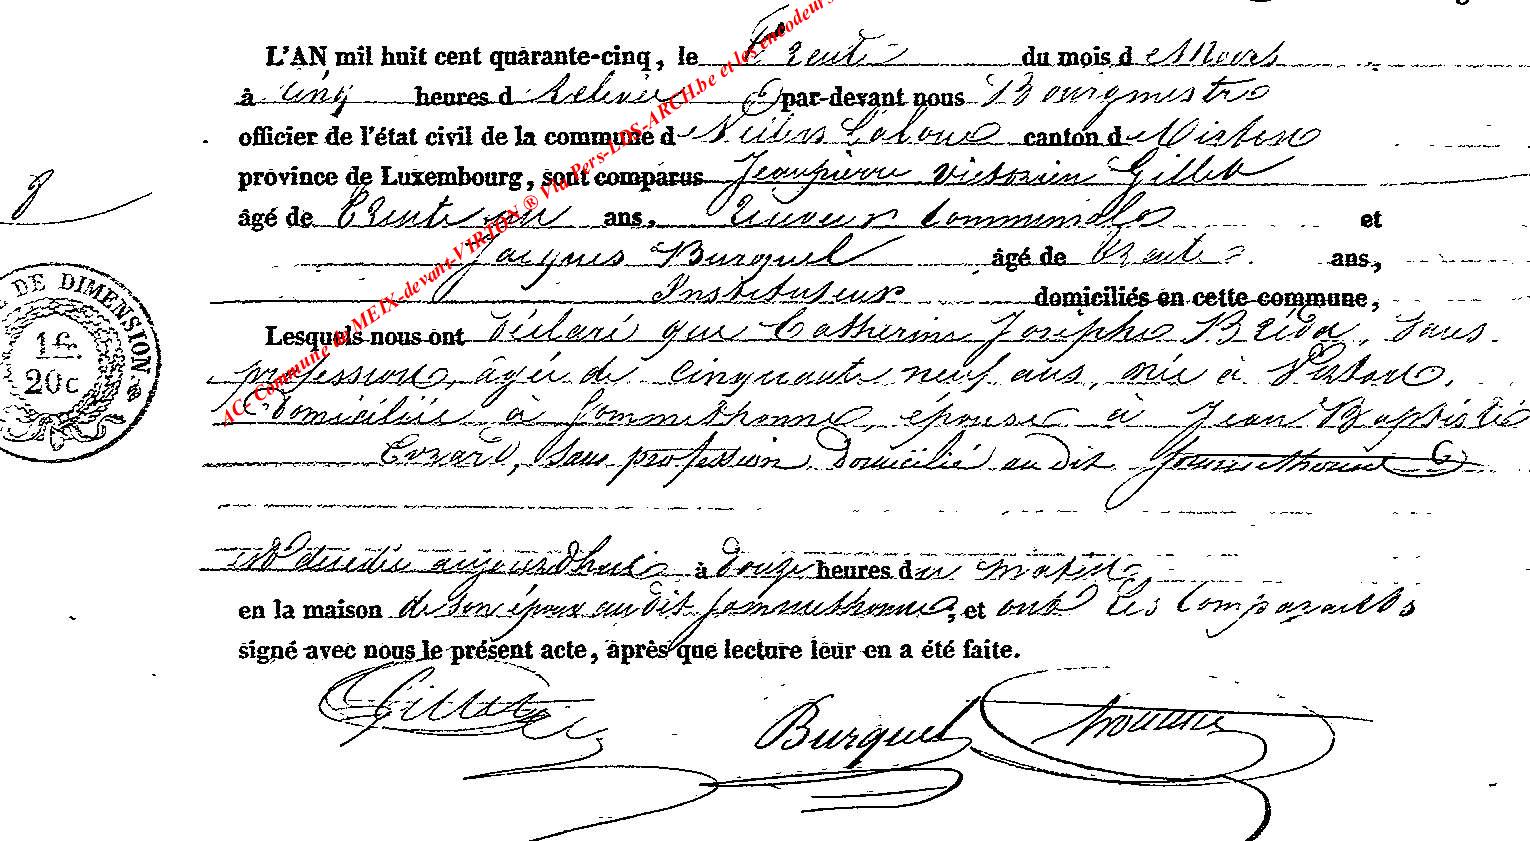 L'AN mil huit cent quarante-cinq, le Trente du mois de Mars
à cinq heures de Relevée par-devant nous Bourgmestre
officier de l'état civil de la commune de Villers Laloue canton de Virton
province de Luxembourg, sont comparus Jeanpierre Victorien Gillet
âgé de trente un ans, receveur communale et
Jacques Burquel âgé de trente ans,
Instituteur domiciliés en cette commune,
Lesquels nous ont déclaré que Catherine Josephe Bréda, sans
profession, âgée de cinquante neuf ans, née à Virton,
domiciliée à Sommethonne, épouse à Jean Baptiste
Evrard, sans profession domicilié au dit Sommethonne
est décédée aujourdhui à douze heures du matin
en la maison de son époux au dit Sommethonne, et ont les Comparants
signé avec nous le présent acte, après que lecture leur en a été faite.
Gillet Burquel
8
DE DIMENSION
1 fr.
20c
AC- Commune de MEIX-devant-VIRTON ® Via Pers-LDS-ARCH.be et les encodeurs